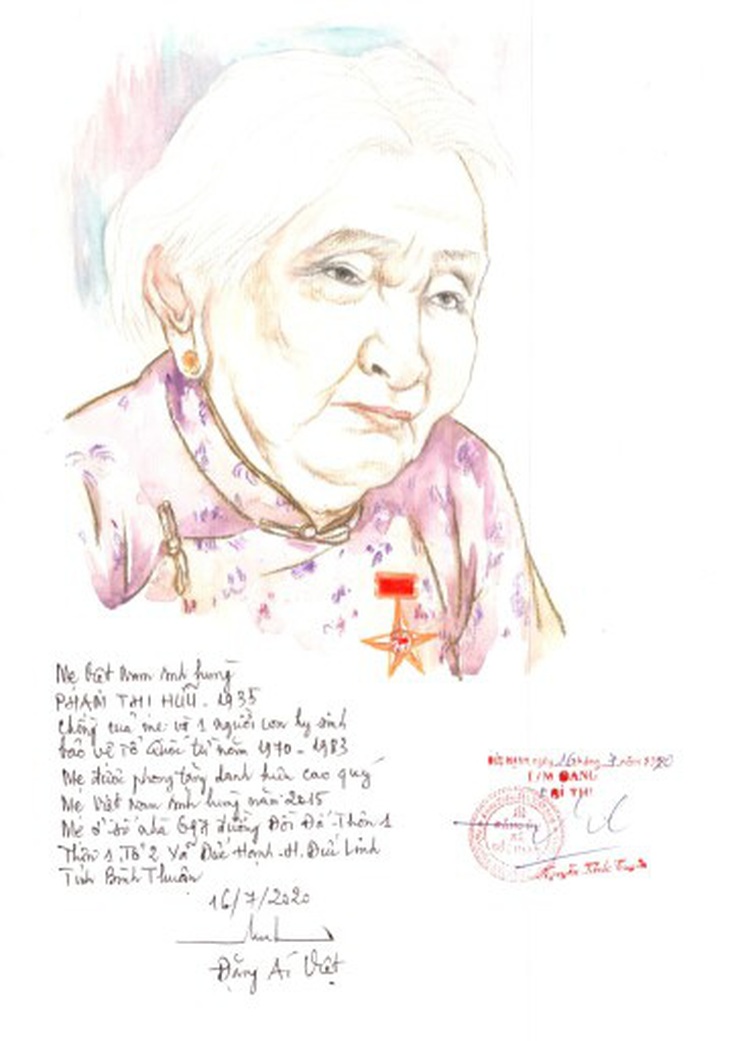 Mẹ Việt Nam Anh hùng
PHẠM THỊ HỮU - 1935
Chồng của mẹ và 1 người con hy sinh
bảo vệ Tổ Quốc từ năm 1970 - 1983
Mẹ được phong tặng danh hiệu cao quý
Mẹ Việt Nam Anh hùng năm 2015
Mẹ ở số nhà đường Thôn 1
Thôn 1 Tổ 2 Xã Đức Hạnh - H. Đức Linh
Tỉnh Bình Thuận
16/7/2020
Đặng Ái Việt
ĐỨC HẠNH ngày 16 tháng 7 năm 2020
T/M ĐẢNG
BÍ THƯ